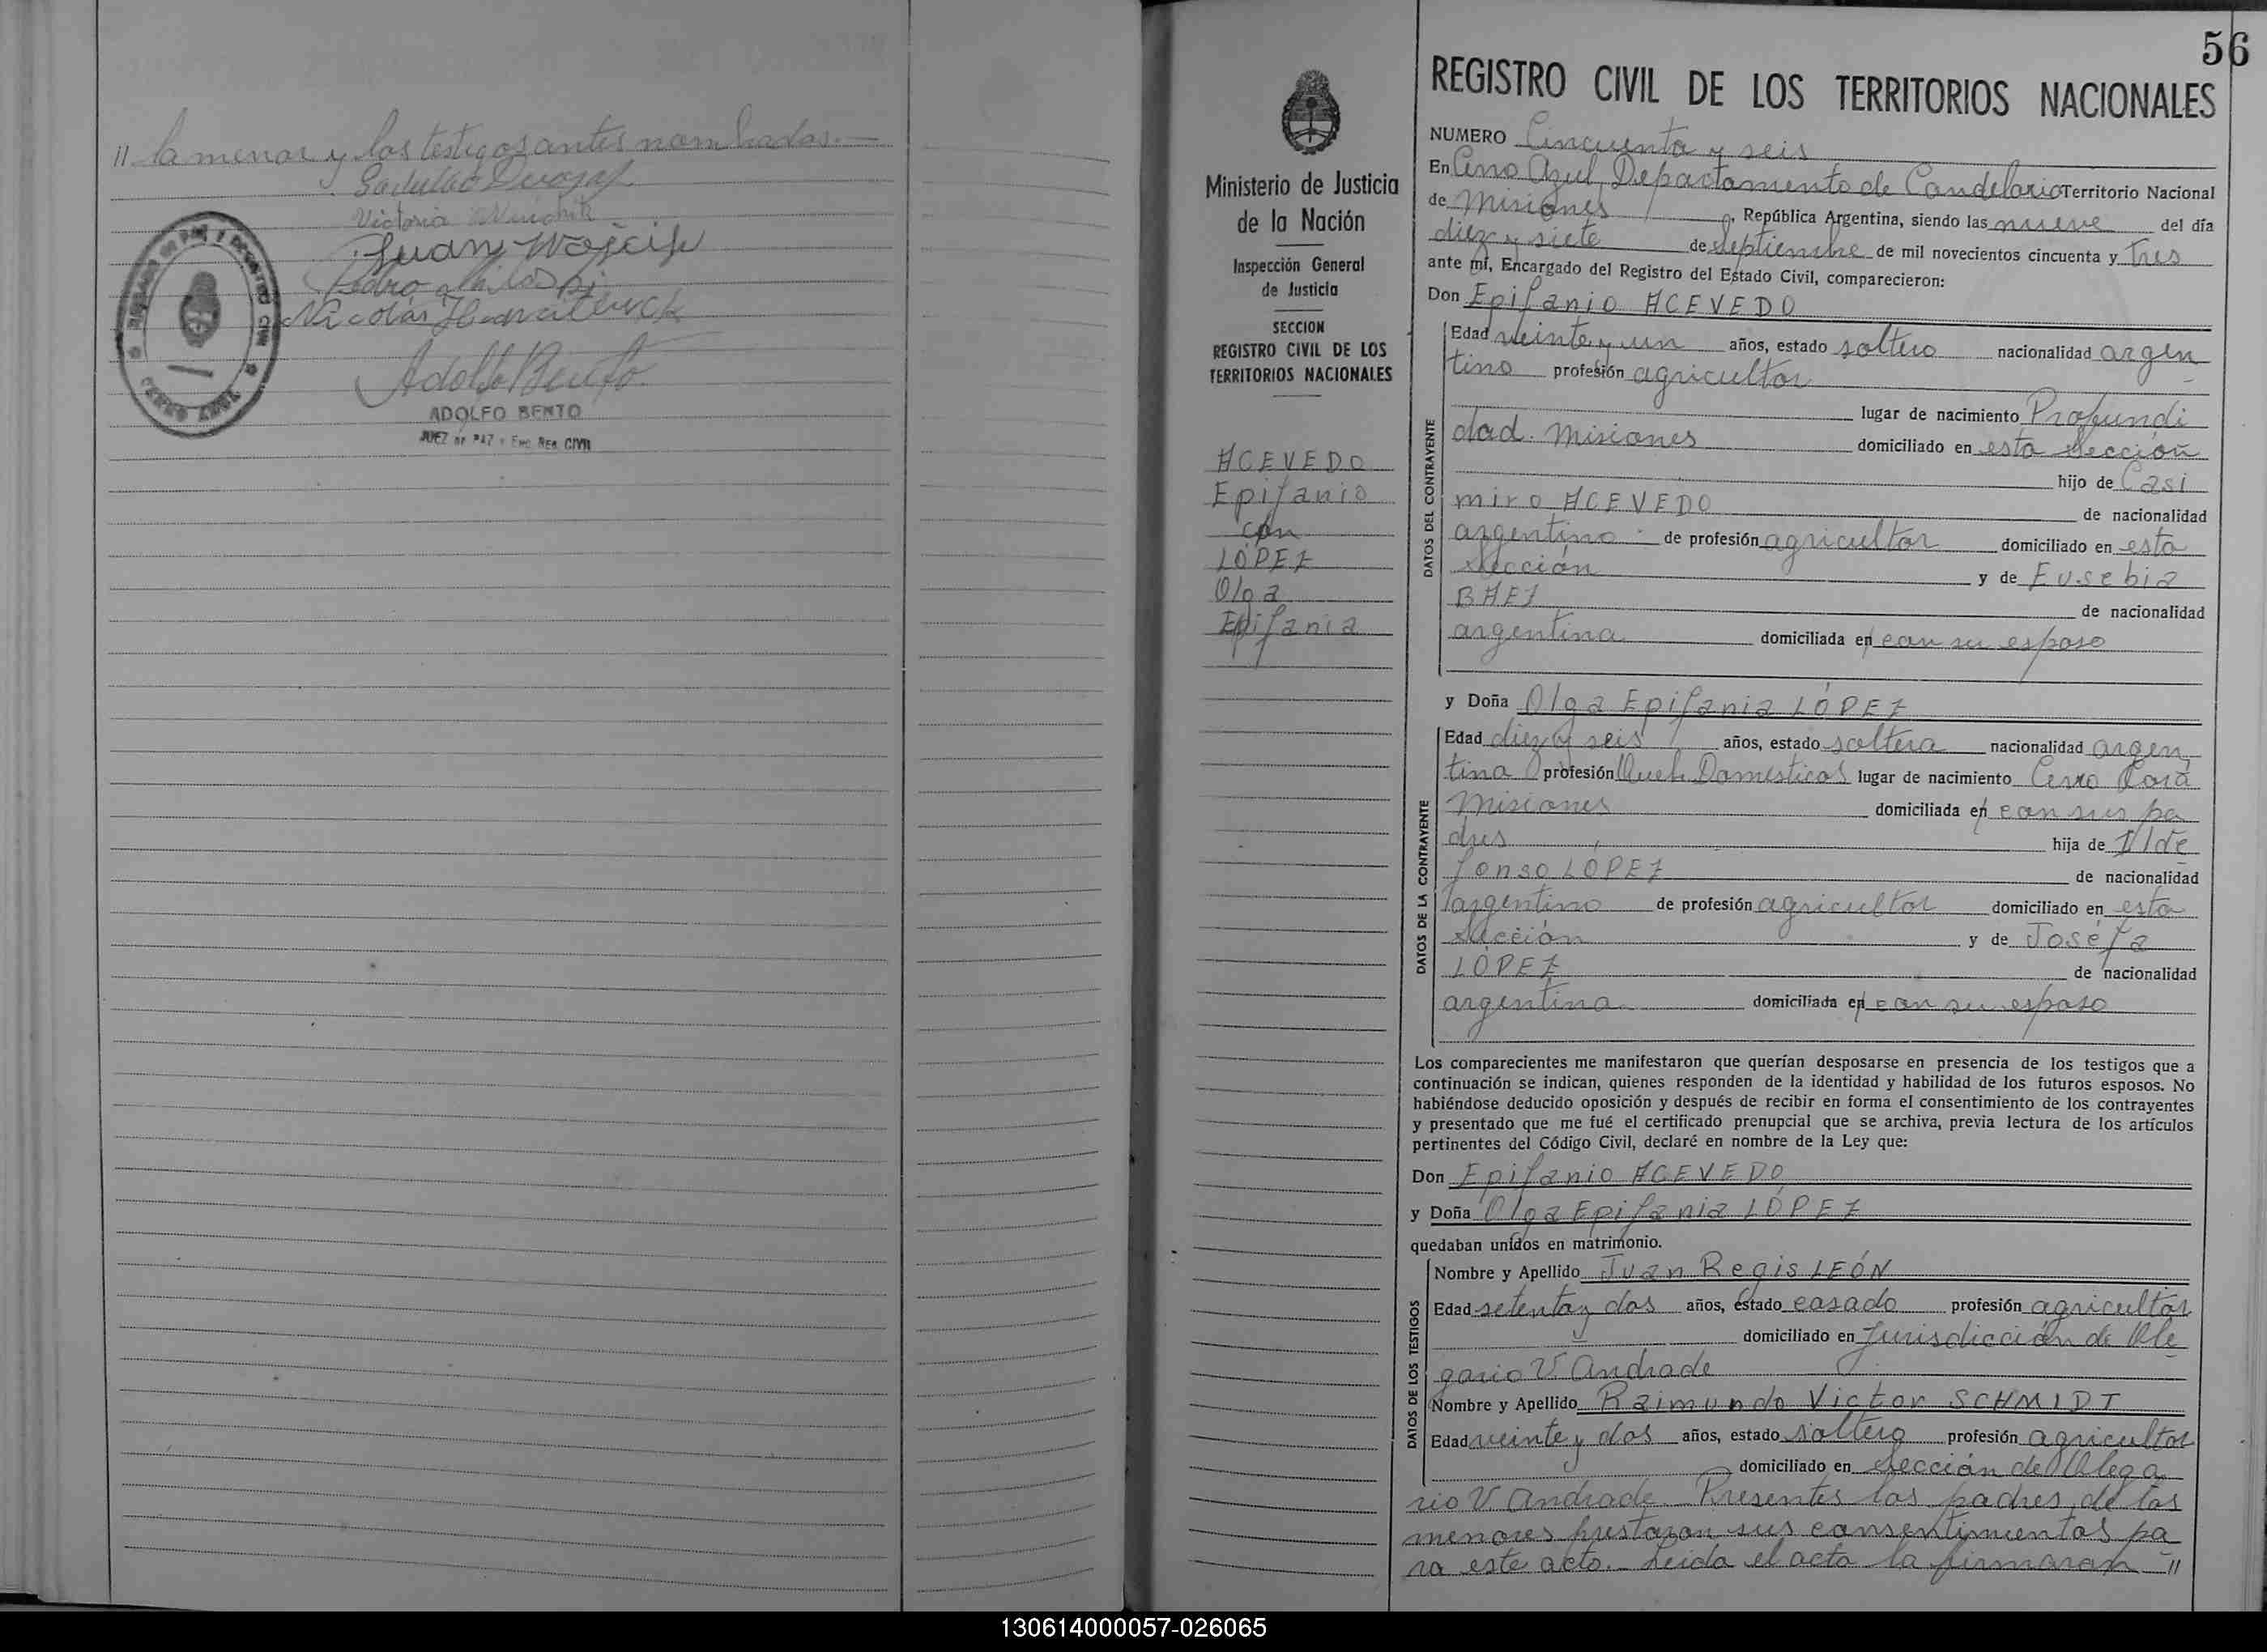 // la menor y los testigos antes nombrados.-
Victoria
Juan Wojcik
Pedro
Nicolás
Adolfo Bento
ADOLFO BENTO
JUEZ DE PAZ y Enc. Reg. CIVIL
CERRO AZUL
56
Ministerio de Justicia
de la Nación
Inspección General
de Justicia
SECCION
REGISTRO CIVIL DE LOS
TERRITORIOS NACIONALES
ACEVEDO
Epifanio
con
LÓPEZ
Olga
Epifania
REGISTRO CIVIL DE LOS TERRITORIOS NACIONALES
NUMERO Cincuenta y seis
En Cerro Azul, Departamento de Candelaria Territorio Nacional
de Misiones, República Argentina, siendo las nueve del día
diez y siete de Septiembre de mil novecientos cincuenta y tres
ante mí, Encargado del Registro del Estado Civil, comparecieron:
Don Epifanio ACEVEDO
DATOS DEL CONTRAYENTE
Edad veinte y un años, estado soltero nacionalidad argen
tino profesión agricultor
lugar de nacimiento Profundi
dad. Misiones domiciliado en esta Sección
hijo de Casi
miro ACEVEDO de nacionalidad
argentino de profesión agricultor domiciliado en esta
Sección y de Eusebia
BAEZ de nacionalidad
argentina domiciliada en con su esposo
y Doña Olga Epifania LÓPEZ
DATOS DE LA CONTRAYENTE
Edad diez y seis años, estado soltera nacionalidad argen
tina profesión Queh. Domésticos lugar de nacimiento Cerro Corá
Misiones domiciliada en con sus pa
dres hija de Ilde
fonso LÓPEZ de nacionalidad
argentino de profesión agricultor domiciliado en esta
Sección y de Josefa
LÓPEZ de nacionalidad
argentina domiciliada en con su esposo
Los comparecientes me manifestaron que querían desposarse en presencia de los testigos que a
continuación se indican, quienes responden de la identidad y habilidad de los futuros esposos. No
habiéndose deducido oposición y después de recibir en forma el consentimiento de los contrayentes
y presentado que me fué el certificado prenupcial que se archiva, previa lectura de los artículos
pertinentes del Código Civil, declaré en nombre de la Ley que:
Don Epifanio ACEVEDO
y Doña Olga Epifania LÓPEZ
quedaban unidos en matrimonio.
DATOS DE LOS TESTIGOS
Nombre y Apellido Juan Regis LEÓN
Edad setenta y dos años, estado casado profesión agricultor
domiciliado en Jurisdicción de Ole
gario V. Andrade
Nombre y Apellido Raimundo Victor SCHMIDT
Edad veinte y dos años, estado soltero profesión agricultor
domiciliado en Sección de Olega
rio V. Andrade. Presentes los padres de los
menores prestaron sus consentimientos pa
ra este acto.- Leida el acta la firmaran //
130614000057-026065